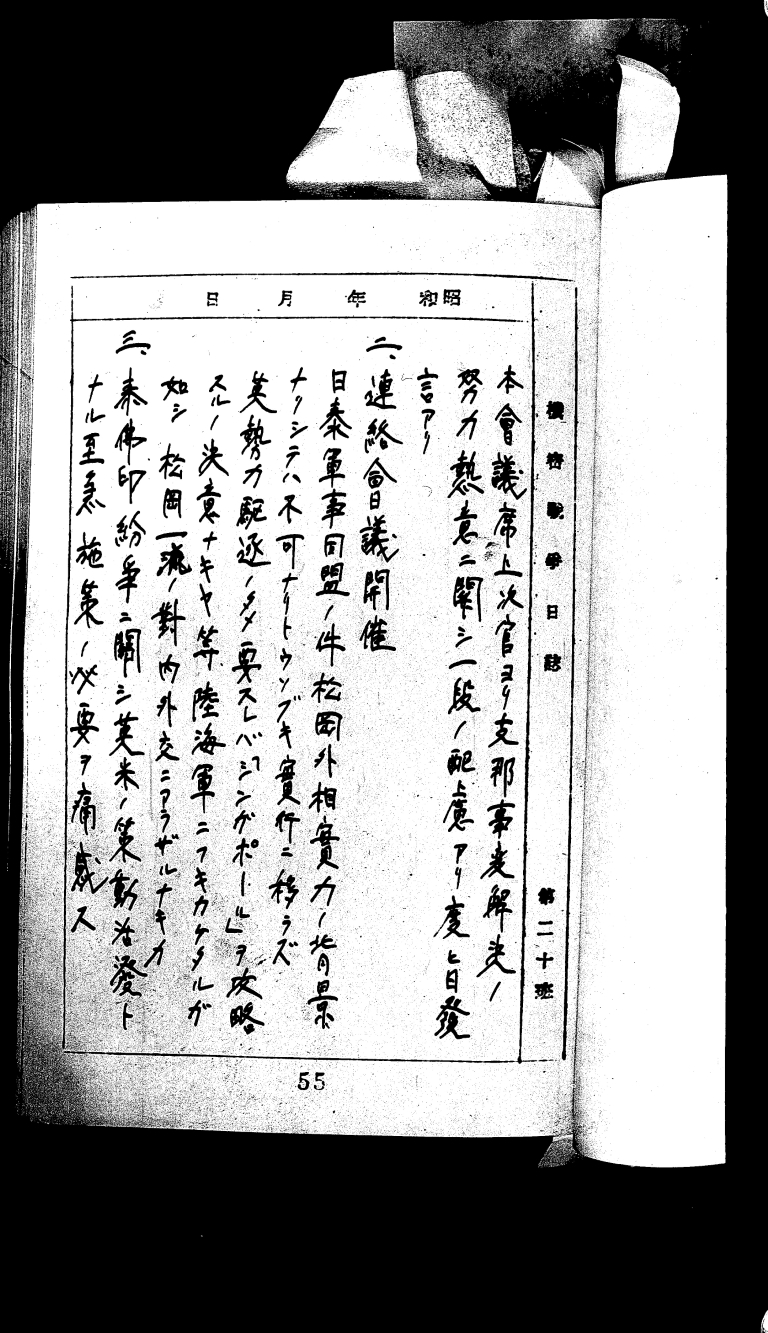 機密戰爭日誌
第二十班
昭和 年 月 日
本會議席上次官ヨリ支那事変解決ノ
努力熱意ニ關シ一段ノ配慮アリ度ヒ日發
言アリ
二、連絡會議開催
日泰軍事同盟ノ件松岡外相實力ノ背景
ナクシテハ不可ナリトウソブキ實行ニ移ラズ
英勢力駆逐ノタメ要スレバ「シンガポール」ヲ攻略
スルノ決意ナキヤ等陸海軍ニフキカケタルガ
如シ 松岡一流ノ對内外交ニアラザルナキカ
三、泰佛印紛争ニ關シ英米ノ策動活發ト
ナル至急施策ノ必要ヲ痛感ス
55